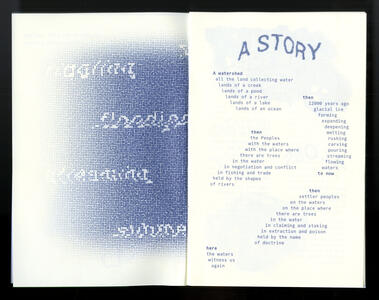 A STORY
A watershed
all the land collecting water
lands of a creek
lands of a pond
lands of a river
lands of a lake
lands of an ocean
then
12000 years ago
glacial ice
forming
expanding
deepening
melting
rushing
carving
pouring
streaming
flowing
waters
to now
then
the Peoples
with the waters
with the place where
there are trees
in the water
in negotiation and conflict
in fishing and trade
held by the shapes
of rivers
then
settler peoples
on the waters
on the place where
there are trees
in the water
in claiming and staking
in extraction and poison
held by the name
of doctrine
here
the waters
witness us
again